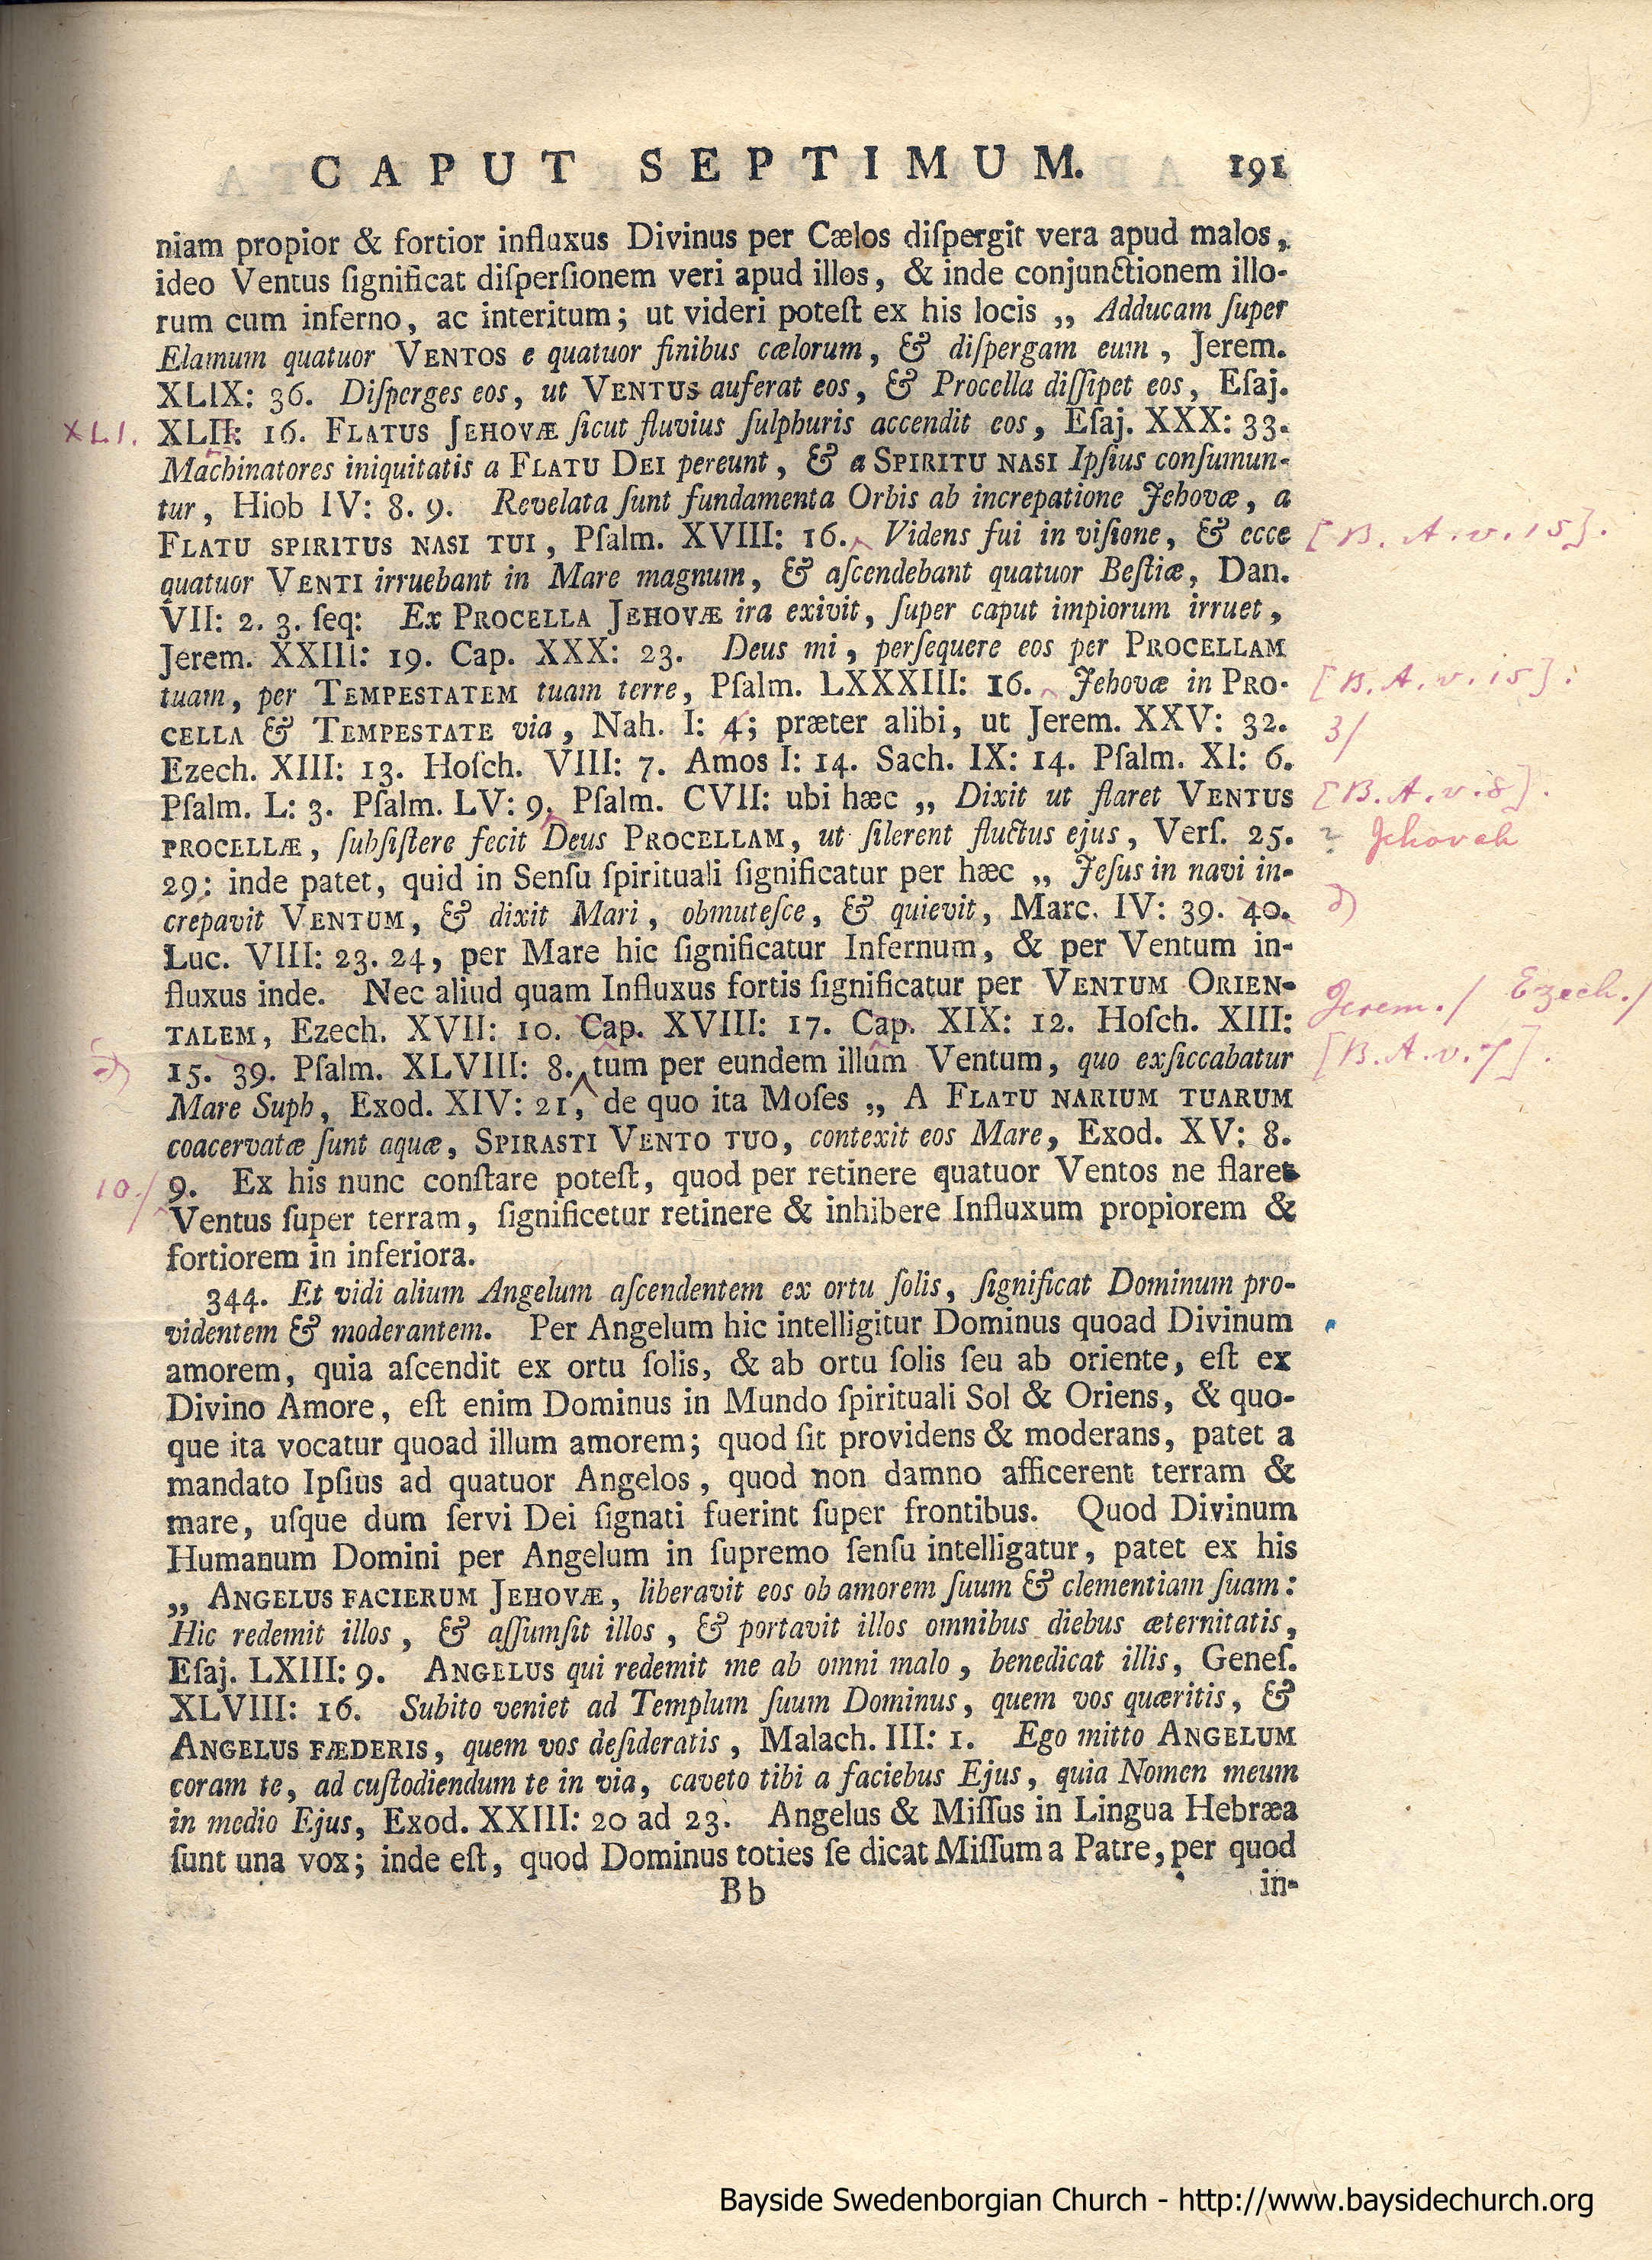 CAPUT SEPTIMUM. 191
niam propior & fortior influxus Divinus per Cælos diſpergit vera apud malos,
ideo Ventus ſignificat diſperſionem veri apud illos, & inde conjunctionem illo-
rum cum inferno, ac interitum; ut videri poteſt ex his locis „ Adducam ſuper
Elamum quatuor VENTOS e quatuor finibus cælorum, & diſpergam eum, Jerem.
XLIX: 36. Diſperges eos, ut VENTUS auferat eos, & Procella diſſipet eos, Eſaj.
XLI. XLII: 16. FLATUS JEHOVÆ ſicut fluvius ſulphuris accendit eos, Eſaj. XXX: 33.
Machinatores iniquitatis a FLATU DEI pereunt, & a SPIRITU NASI Ipſius conſumun-
tur, Hiob IV: 8. 9. Revelata ſunt fundamenta Orbis ab increpatione Jehovæ, a
FLATU SPIRITUS NASI TUI, Pſalm. XVIII: 16. Videns fui in viſione, & ecce [B. A. v. 15].
quatuor VENTI irruebant in Mare magnum, & aſcendebant quatuor Beſtiæ, Dan.
VII: 2. 3. ſeq: Ex PROCELLA JEHOVÆ ira exivit, ſuper caput impiorum irruet,
Jerem. XXIII: 19. Cap. XXX: 23. Deus mi, perſequere eos per PROCELLAM
tuam, per TEMPESTATEM tuam terre, Pſalm. LXXXIII: 16. Jehovæ in PRO- [B. A. v. 15].
CELLA & TEMPESTATE via, Nah. I: 4; præter alibi, ut Jerem. XXV: 32. 3/
Ezech. XIII: 13. Hoſch. VIII: 7. Amos I: 14. Sach. IX: 14. Pſalm. XI: 6.
Pſalm. L: 3. Pſalm. LV: 9. Pſalm. CVII: ubi hæc „ Dixit ut flaret VENTUS [B. A. v. 8].
PROCELLÆ, ſubſiſtere fecit Deus PROCELLAM, ut ſilerent fluctus ejus, Verſ. 25. ? Jehovah
29: inde patet, quid in Senſu ſpirituali ſignificatur per hæc „ Jeſus in navi in-
crepavit VENTUM, & dixit Mari, obmuteſce, & quievit, Marc. IV: 39. 40.
Luc. VIII: 23. 24, per Mare hic ſignificatur Infernum, & per Ventum in-
fluxus inde. Nec aliud quam Influxus fortis ſignificatur per VENTUM ORIEN- Jerem./ Ezech./
TALEM, Ezech. XVII: 10. Cap. XVIII: 17. Cap. XIX: 12. Hoſch. XIII:
15. 39. Pſalm. XLVIII: 8. tum per eundem illum Ventum, quo exſiccabatur [B. A. v. 7].
Mare Suph, Exod. XIV: 21, de quo ita Moſes „ A FLATU NARIUM TUARUM
coacervatæ ſunt aquæ, SPIRASTI VENTO TUO, contexit eos Mare, Exod. XV: 8.
10./ 9. Ex his nunc conſtare poteſt, quod per retinere quatuor Ventos ne flaret
Ventus ſuper terram, ſignificetur retinere & inhibere Influxum propiorem &
fortiorem in inferiora.
344. Et vidi alium Angelum aſcendentem ex ortu ſolis, ſignificat Dominum pro-
videntem & moderantem. Per Angelum hic intelligitur Dominus quoad Divinum
amorem, quia aſcendit ex ortu ſolis, & ab ortu ſolis ſeu ab oriente, eſt ex
Divino Amore, eſt enim Dominus in Mundo ſpirituali Sol & Oriens, & quo-
que ita vocatur quoad illum amorem; quod ſit providens & moderans, patet a
mandato Ipſius ad quatuor Angelos, quod non damno afficerent terram &
mare, uſque dum ſervi Dei ſignati fuerint ſuper frontibus. Quod Divinum
Humanum Domini per Angelum in ſupremo ſenſu intelligatur, patet ex his
„ ANGELUS FACIERUM JEHOVÆ, liberavit eos ob amorem ſuum & clementiam ſuam:
Hic redemit illos, & aſſumſit illos, & portavit illos omnibus diebus æternitatis,
Eſaj. LXIII: 9. ANGELUS qui redemit me ab omni malo, benedicat illis, Geneſ.
XLVIII: 16. Subito veniet ad Templum ſuum Dominus, quem vos quæritis, &
ANGELUS FÆDERIS, quem vos deſideratis, Malach. III: 1. Ego mitto ANGELUM
coram te, ad cuſtodiendum te in via, caveto tibi a faciebus Ejus, quia Nomen meum
in medio Ejus, Exod. XXIII: 20 ad 23. Angelus & Miſſus in Lingua Hebræa
ſunt una vox; inde eſt, quod Dominus toties ſe dicat Miſſum a Patre, per quod
Bb in-
Bayside Swedenborgian Church - http://www.baysidechurch.org